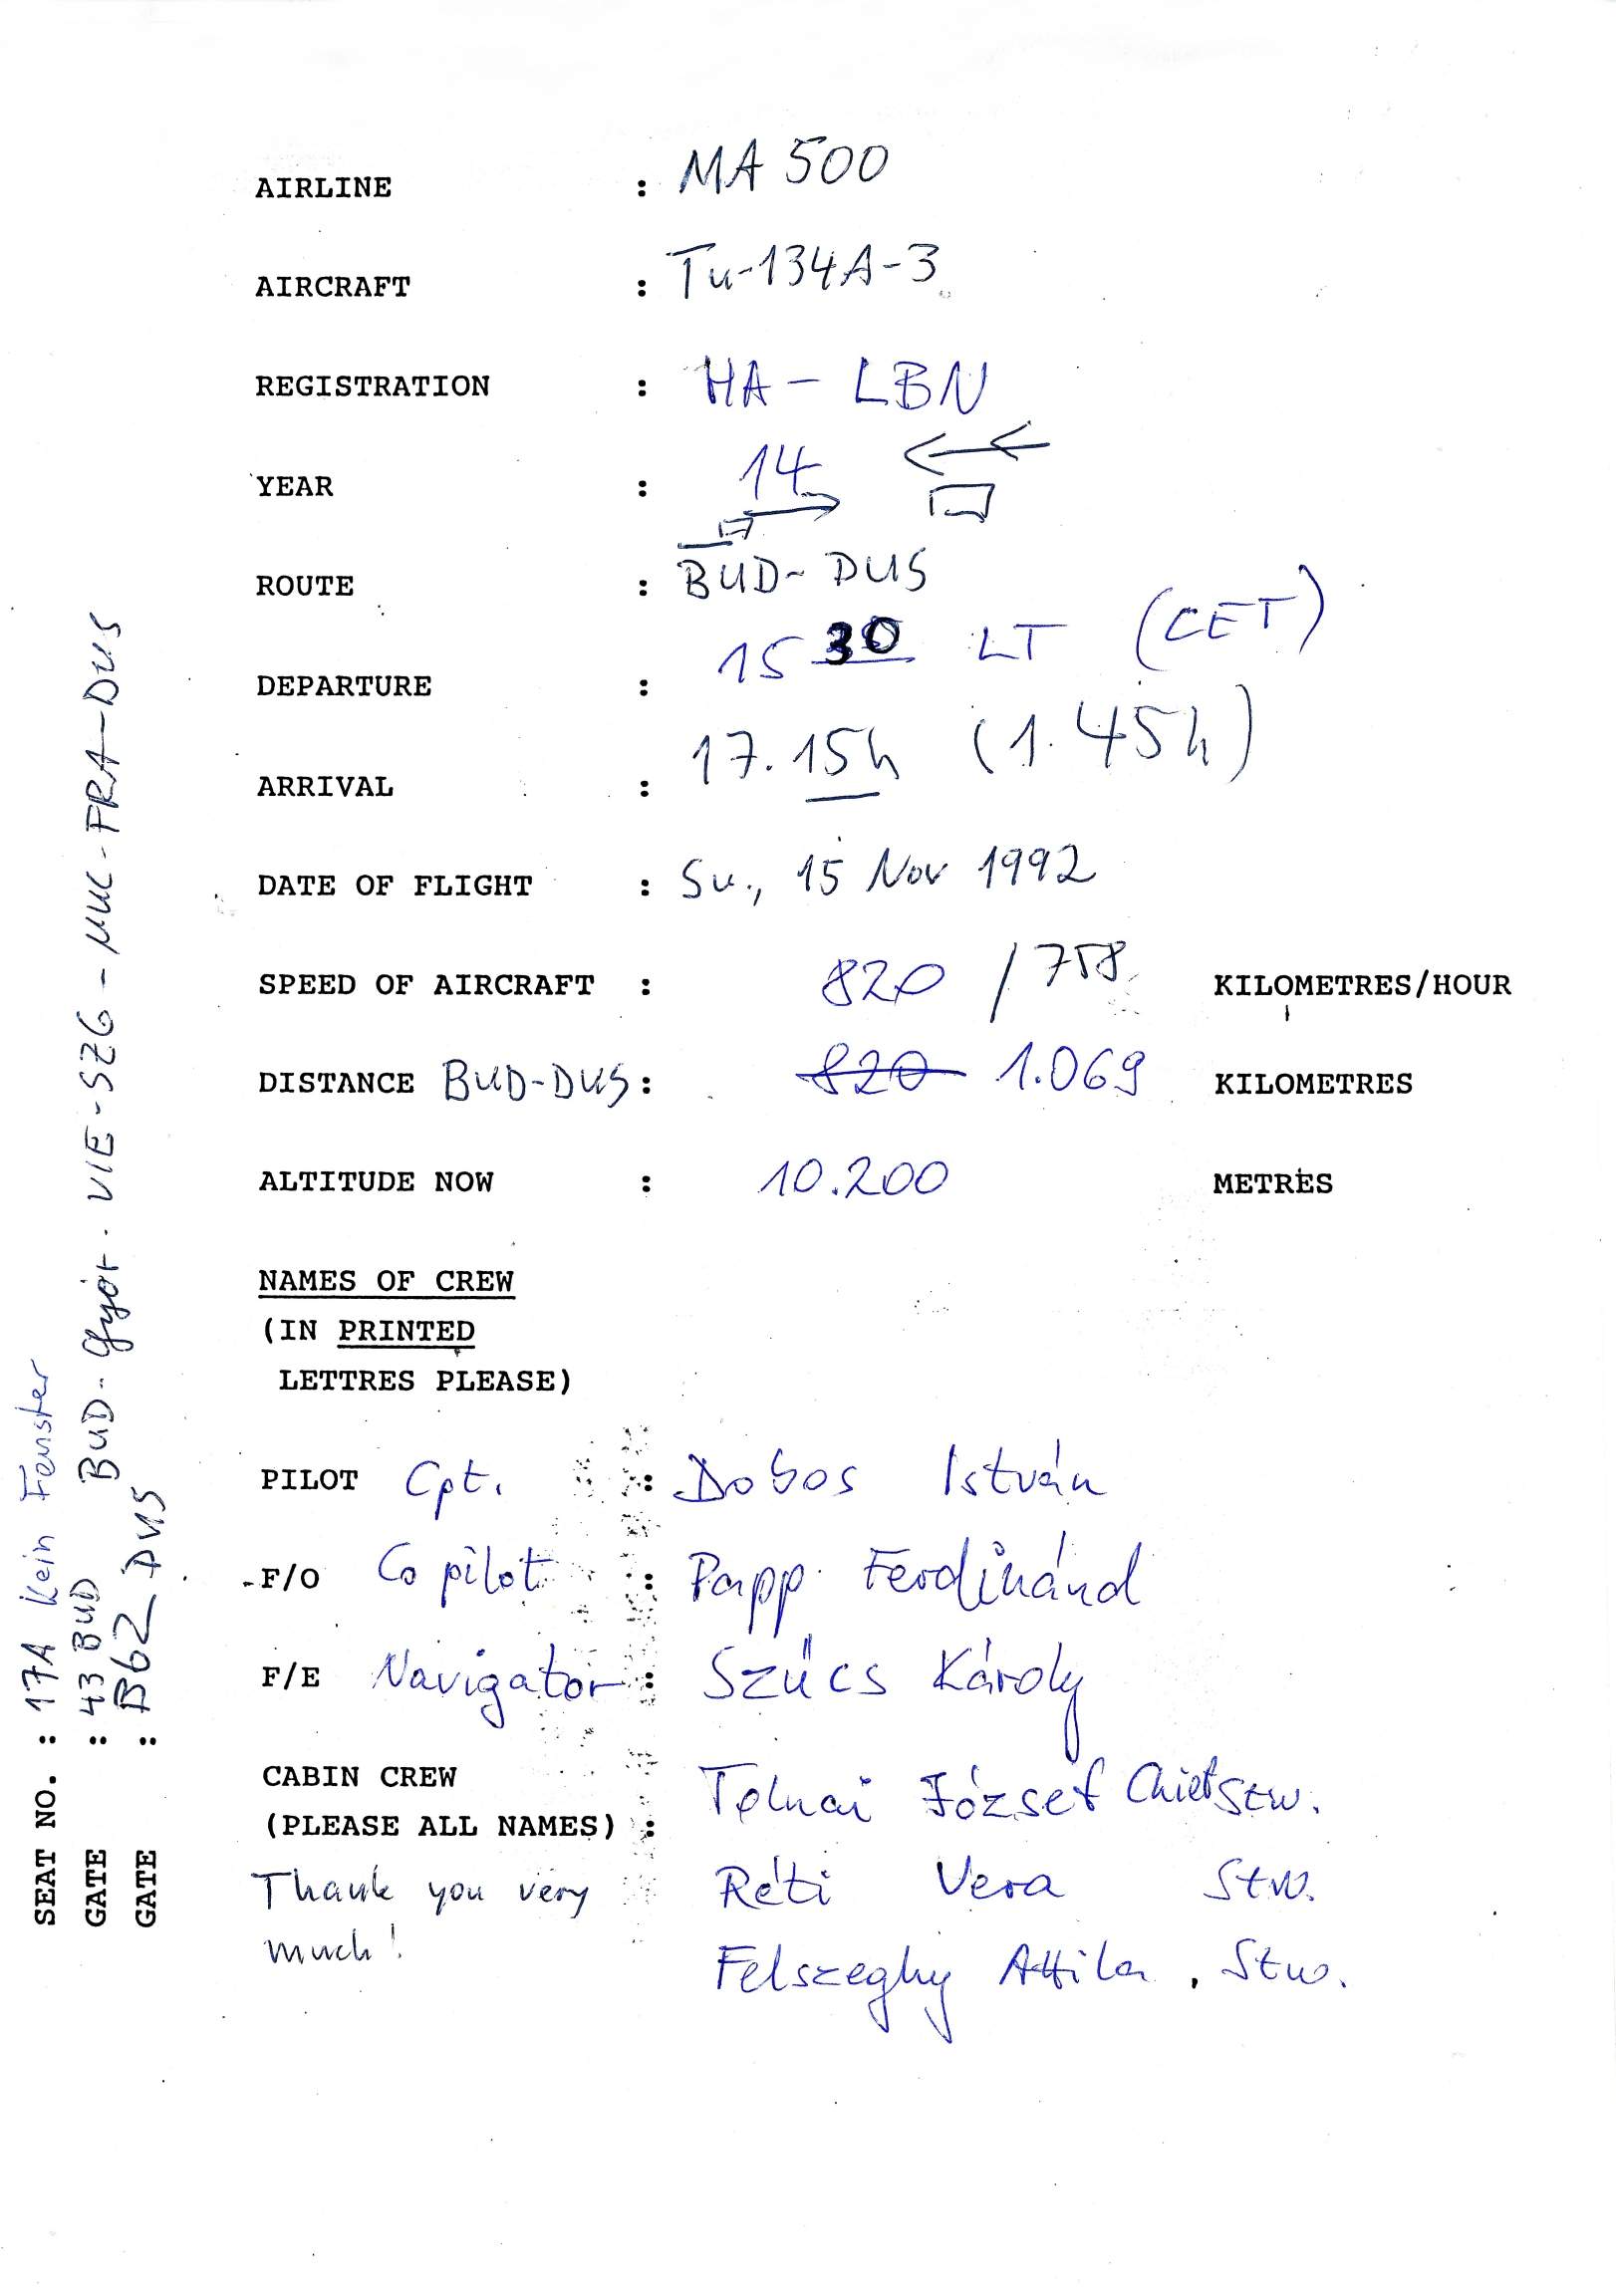 AIRLINE : MA 500
AIRCRAFT : Tu-134A-3
REGISTRATION : HA-LBN
YEAR : 14
ROUTE : BUD-DUS
DEPARTURE : 15 30 LT (CET)
ARRIVAL : 17.15h (1.45h)
DATE OF FLIGHT : Su., 15 Nov 1992
SPEED OF AIRCRAFT : 820 / 758 KILOMETRES/HOUR
DISTANCE BUD-DUS : 820 1.069 KILOMETRES
ALTITUDE NOW : 10.200 METRES
NAMES OF CREW
(IN PRINTED
LETTRES PLEASE)
PILOT Cpt. : Dobos István
F/O Co pilot : Papp Ferdinánd
F/E Navigator : Szűcs Károly
CABIN CREW Tolnai József Chief Stw.
(PLEASE ALL NAMES) :
Thank you very Réti Vera Stw.
much! Felszeghy Attila, Stw.
SEAT NO. : 17A Kein Fenster
GATE : 43 BUD BUD-Győr-VIE-SZG-MUC-FRA-DUS
GATE : B62 DUS